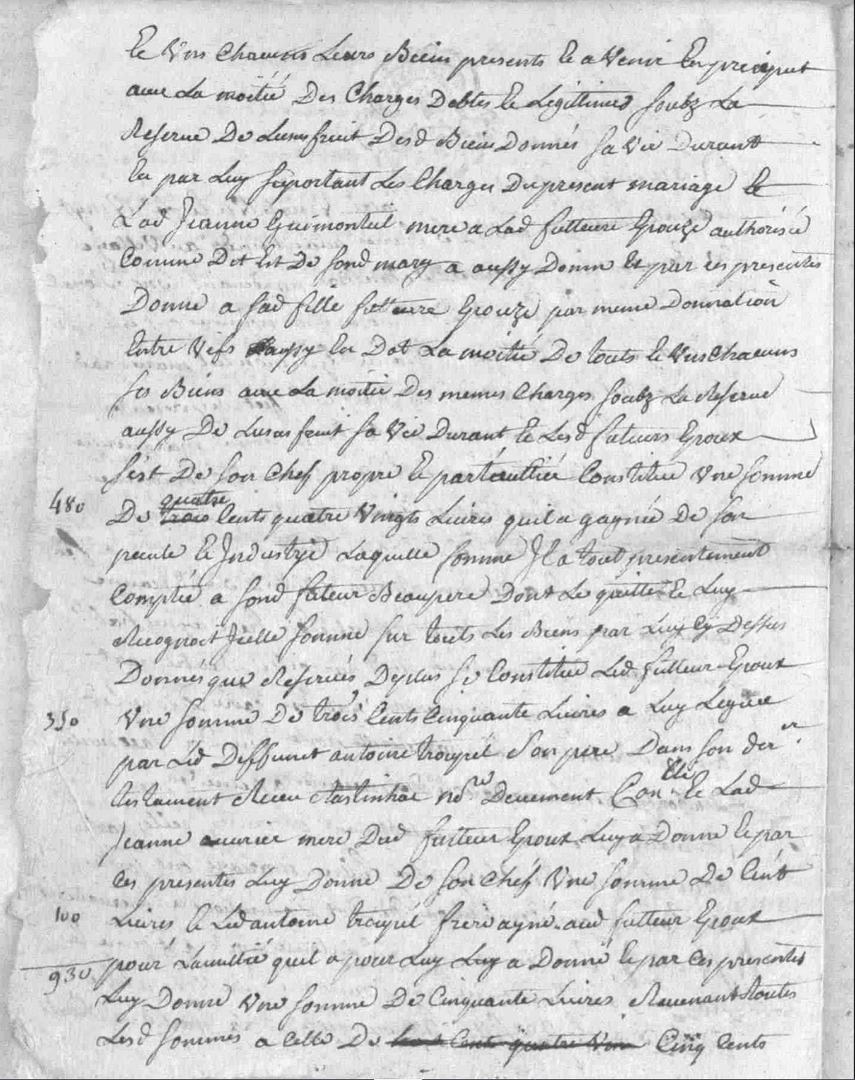 Et Uns Chacuns Leurs Biens presents Et a Venir En preciput
avec La moitié Des Charges Debtes Et Legitimes soubz La
Reserve De Lusufruit Desd Biens Donnés sa Vie Durant
En par Luy suportant Les Charges Du present mariage Et
Lad Jeanne Guimonteil mere a Lad futteure Epouze authorisée
Comme Dit Est De sond mary a aussy Donné Et par ces presentes
Donne a sad fille futteure Epouze par meme Donnation
Entre Vifs aussy En Dot La moitié De touts Et Uns Chacuns
ses Biens avec La moitié Des memes Charges soubz La Reserve
aussy De Lusufruit sa Vie Durant Et Led futteurs Epoux
sest De son Chef propre Et particullier Constitué Une somme
480 De trois quatre Cents quatre Vingts Livres quil a gagnée De son
pecule Et Industrye Laquelle somme Il a tout presentement
Comptée a sond futeur Beaupere Dont Le quitte Et Luy
Recognoit Icelle somme sur touts Les Biens par Luy Cy Dessus
Donnés que Reservés Deplus se Constitue Led futteur Epoux
350 Une somme De trois Cents Cinquante Livres a Luy Leguée
par Led Deffunct antoine troupel son pere Dans son der er
testament Receu no re Deuement Con lle Et Lad
Jeanne mere Dud futteur Epoux Luy a Donné Et par
Ces presentes Luy Donne De son Chef Une somme De Cent
100 Livres Et Led antoine troupel frere ayné aud futteur Epoux
930 pour Lamitié quil a pour Luy Luy a Donné Et par Ces presentes
Luy Donne Une somme De Cinquante Livres Revenant toutes
Lesd sommes a Celle De Cents quatre Vin Cinq Cents